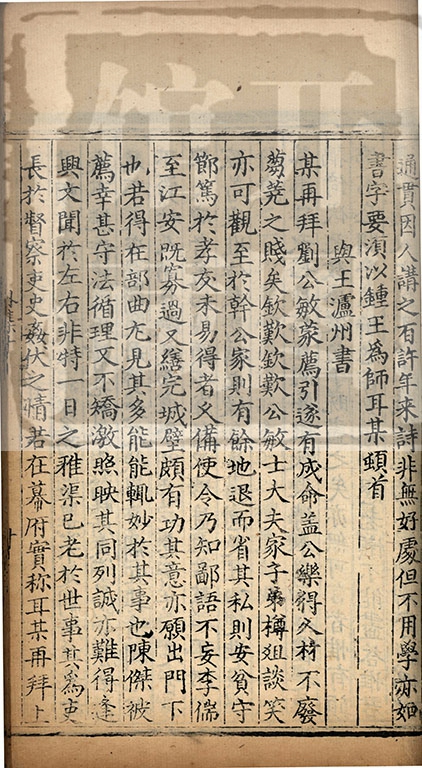 通貫因人講之百許年來詩非無好處但不用學亦如
書字要須以鍾王為師耳某頓首
與王瀘州書
某再拜劉公敏蒙薦引遂有成命蓋公樂得人材不廢
蒭蕘之賤矣欽歎欽歎公敏士大夫家子弟樽俎談笑
亦可觀至於幹公家則有餘地退而省其私則安貧守
節篤於孝友未易得者又備使令乃知鄙語不妄李偳
至江安既寡過又繕完城壁頗有功其意亦願出門下
也若得在部曲尢見其多能能輒妙於其事也陳傑被
薦幸甚守法循理又不矯激照映其同列誠亦難得逢
興文聞於左右非特一日之雅渠已老於世事其為吏
長於督察吏史姦伏之情若在幕府實称耳某再拜上